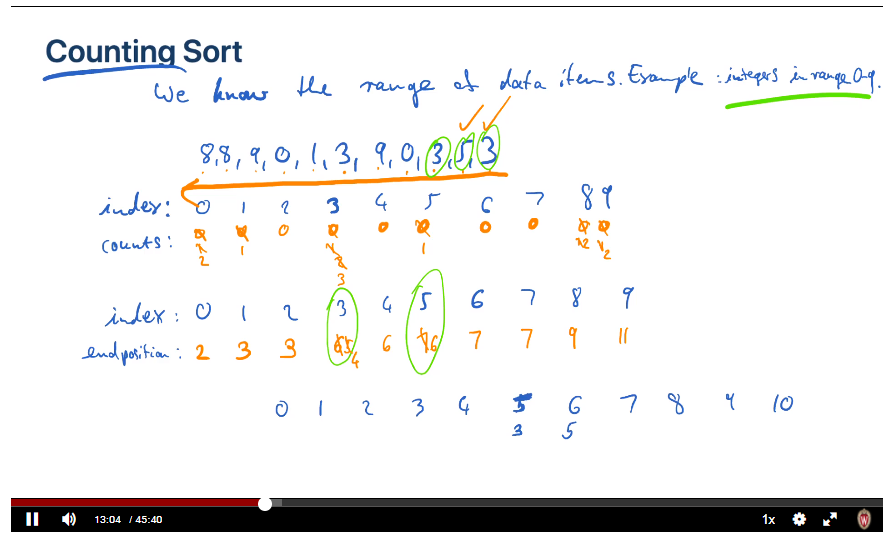 Counting Sort
We know the range of data items. Example : integers in range 0-9.
8,8, 9, 0, 1, 3, 9, 0, 3, 5, 3
index: 0 1 2 3 4 5 6 7 8 9
counts: 0 0 0 0 0 0 0 0 0 0
1 1 1 1 1 2 1 2
2 2
3
index: 0 1 2 3 4 5 6 7 8 9
end position: 2 3 3 6 5 4 6 7 6 7 7 9 11
0 1 2 3 4 5 6 7 8 9 10
3 5
13:04 / 45:40 1x W